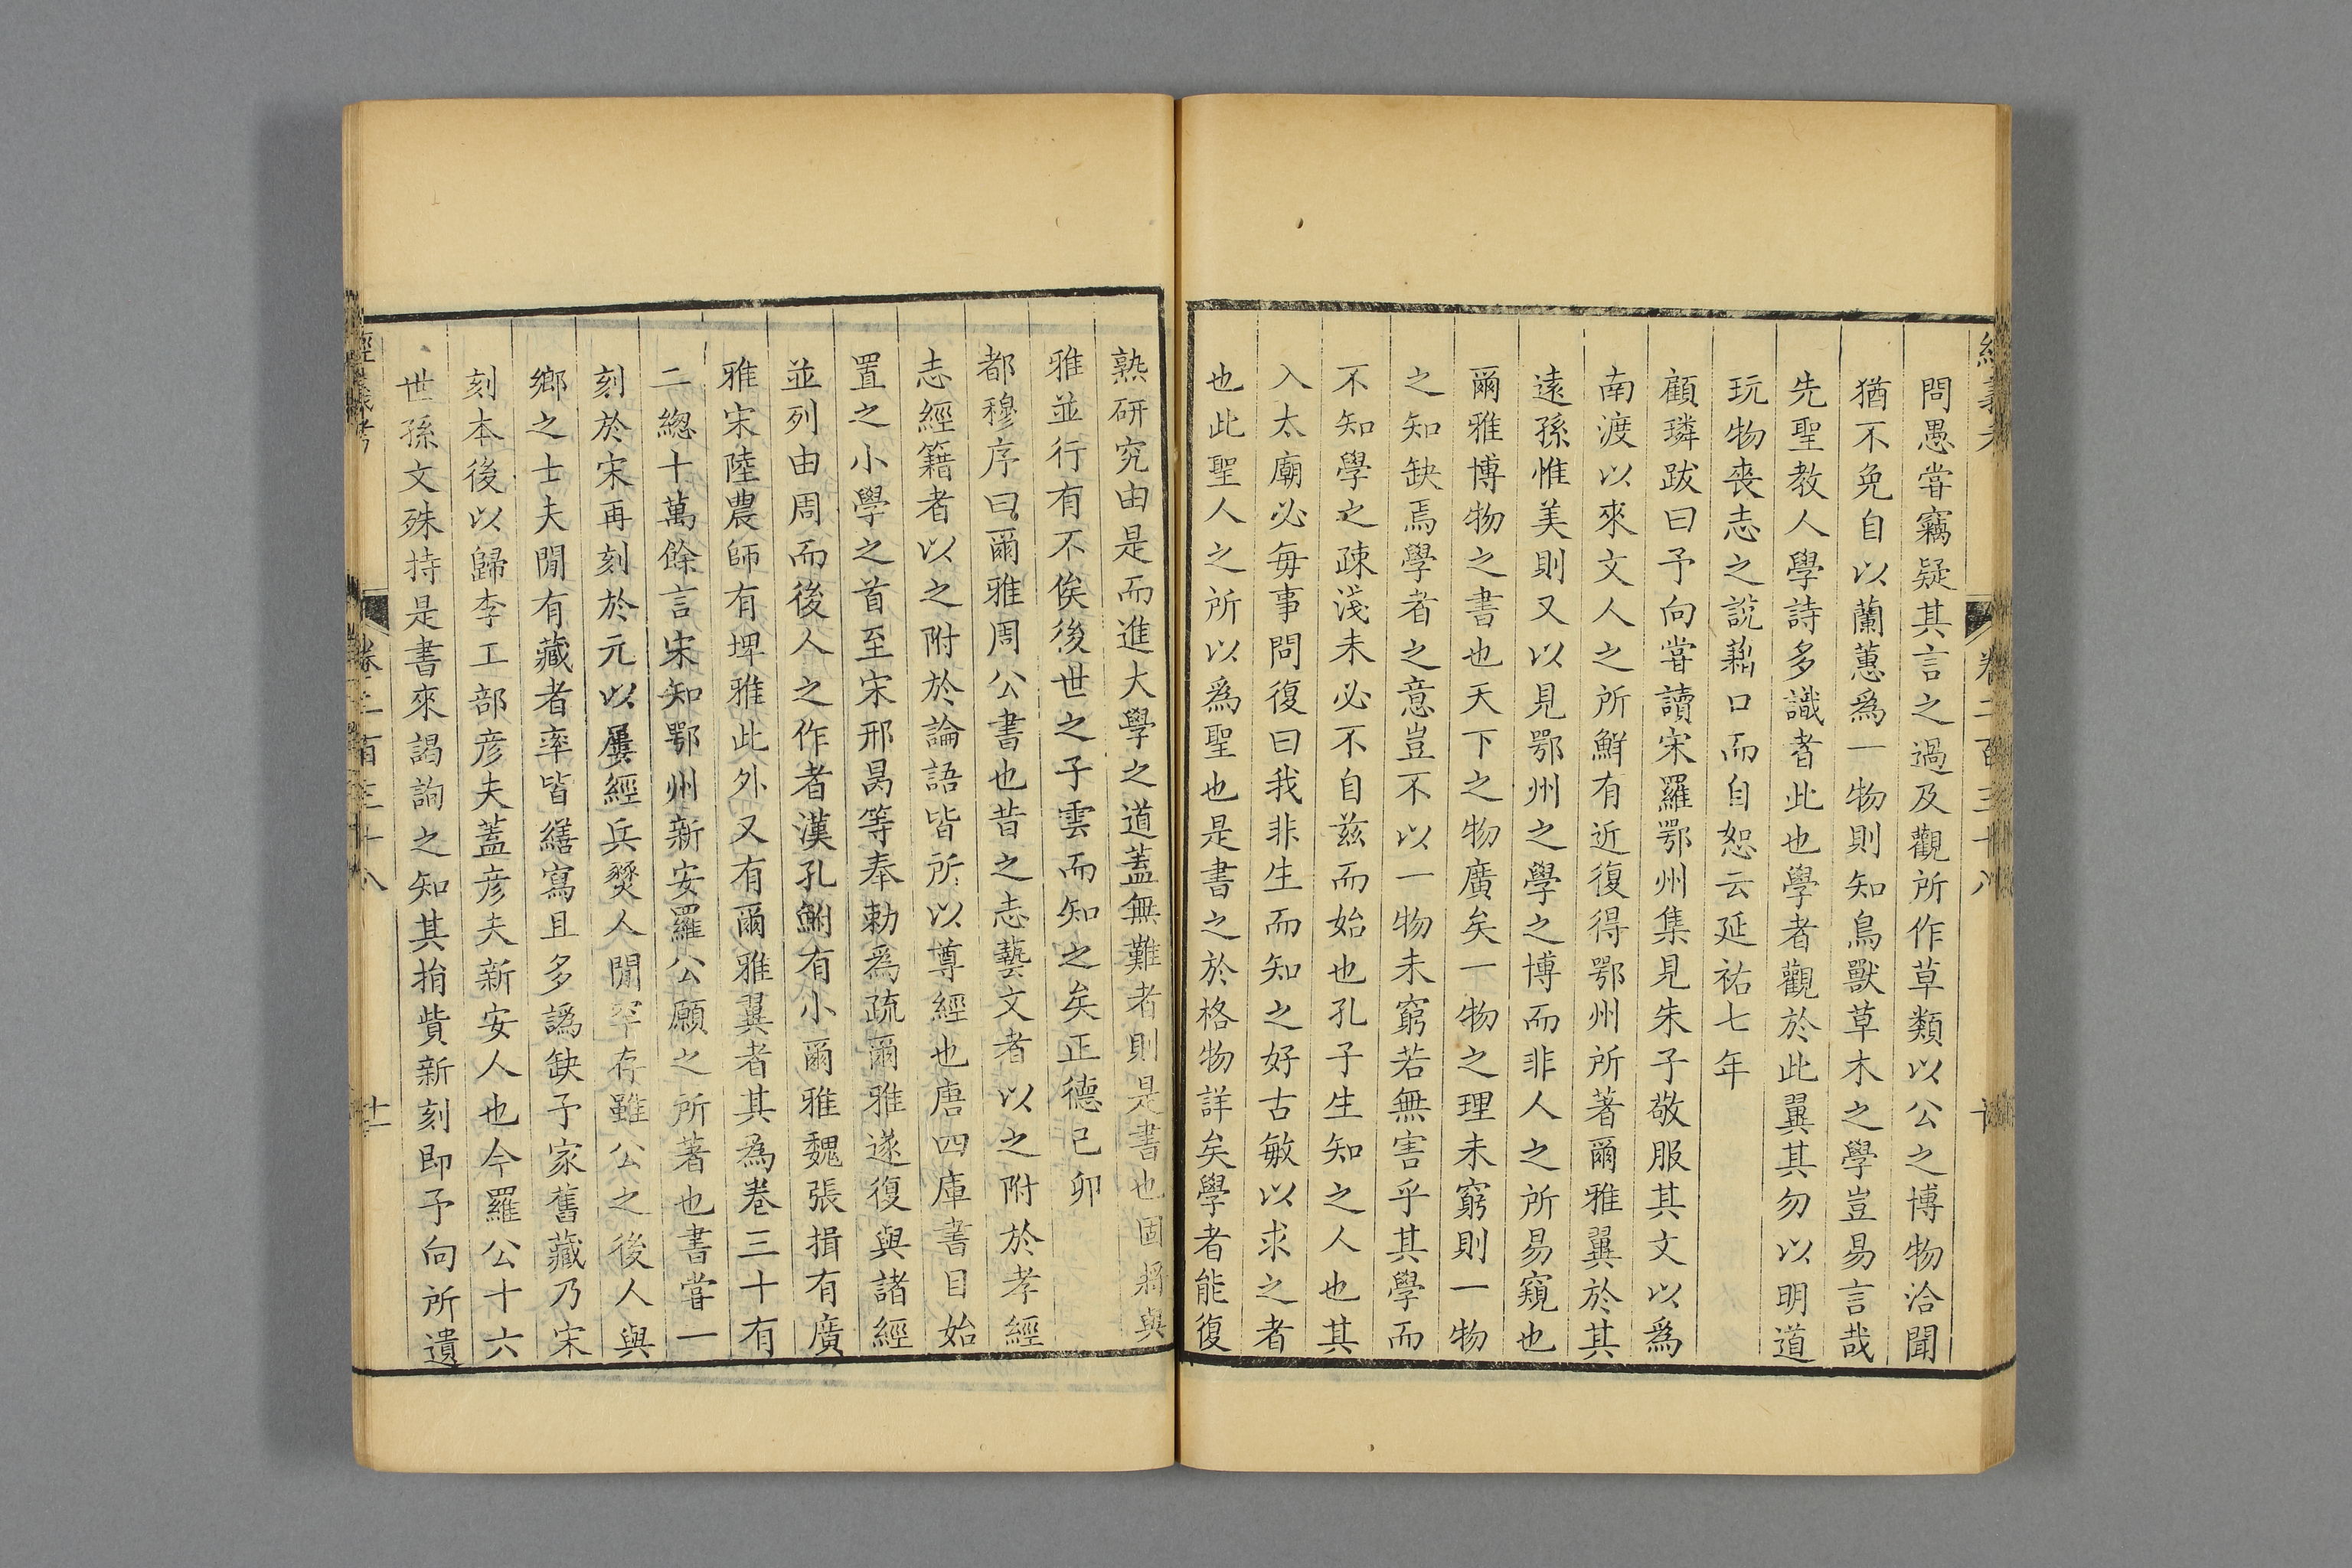 問愚嘗竊疑其言之過及觀所作草類以公之博物洽聞
猶不免自以蘭蕙爲一物則知鳥獸草木之學豈易言哉
先聖教人學詩多識者此也學者觀於此翼其勿以明道
玩物喪志之說藉口而自恕云延祐七年
顧璘跋曰予向嘗讀宋羅鄂州集見朱子敬服其文以爲
南渡以來文人之所鮮有近復得鄂州所著爾雅翼於其
遠孫惟美則又以見鄂州之學之博而非人之所易窺也
爾雅博物之書也天下之物廣矣一物之理未窮則一物
之知缺焉學者之意豈不以一物未窮若無害乎其學而
不知學之疎淺未必不自兹而始也孔子生知之人也其
入太廟必每事問復曰我非生而知之好古敏以求之者
也此聖人之所以爲聖也是書之於格物詳矣學者能復
熟研究由是而進大學之道蓋無難者則是書也固將與
雅並行有不俟後世之子雲而知之矣正德己卯
都穆序曰爾雅周公書也昔之志藝文者以之附於孝經
志經籍者以之附於論語皆所以尊經也唐四庫書目始
置之小學之首至宋邢昺等奉勅爲疏爾雅遂復與諸經
並列由周而後人之作者漢孔鮒有小爾雅魏張揖有廣
雅宋陸農師有埤雅此外又有爾雅翼者其為卷三十有
二總十萬餘言宋知鄂州新安羅公願之所著也書嘗一
刻於宋再刻於元以屢經兵燹人間罕存雖公之後人與
鄉之士夫間有藏者率皆繕寫且多譌缺予家舊藏乃宋
刻本後以歸李工部彥夫蓋彥夫新安人也今羅公十六
世孫文殊持是書來謁詢之知其捐貲新刻即予向所遺
經義考 卷二百三十八 十一